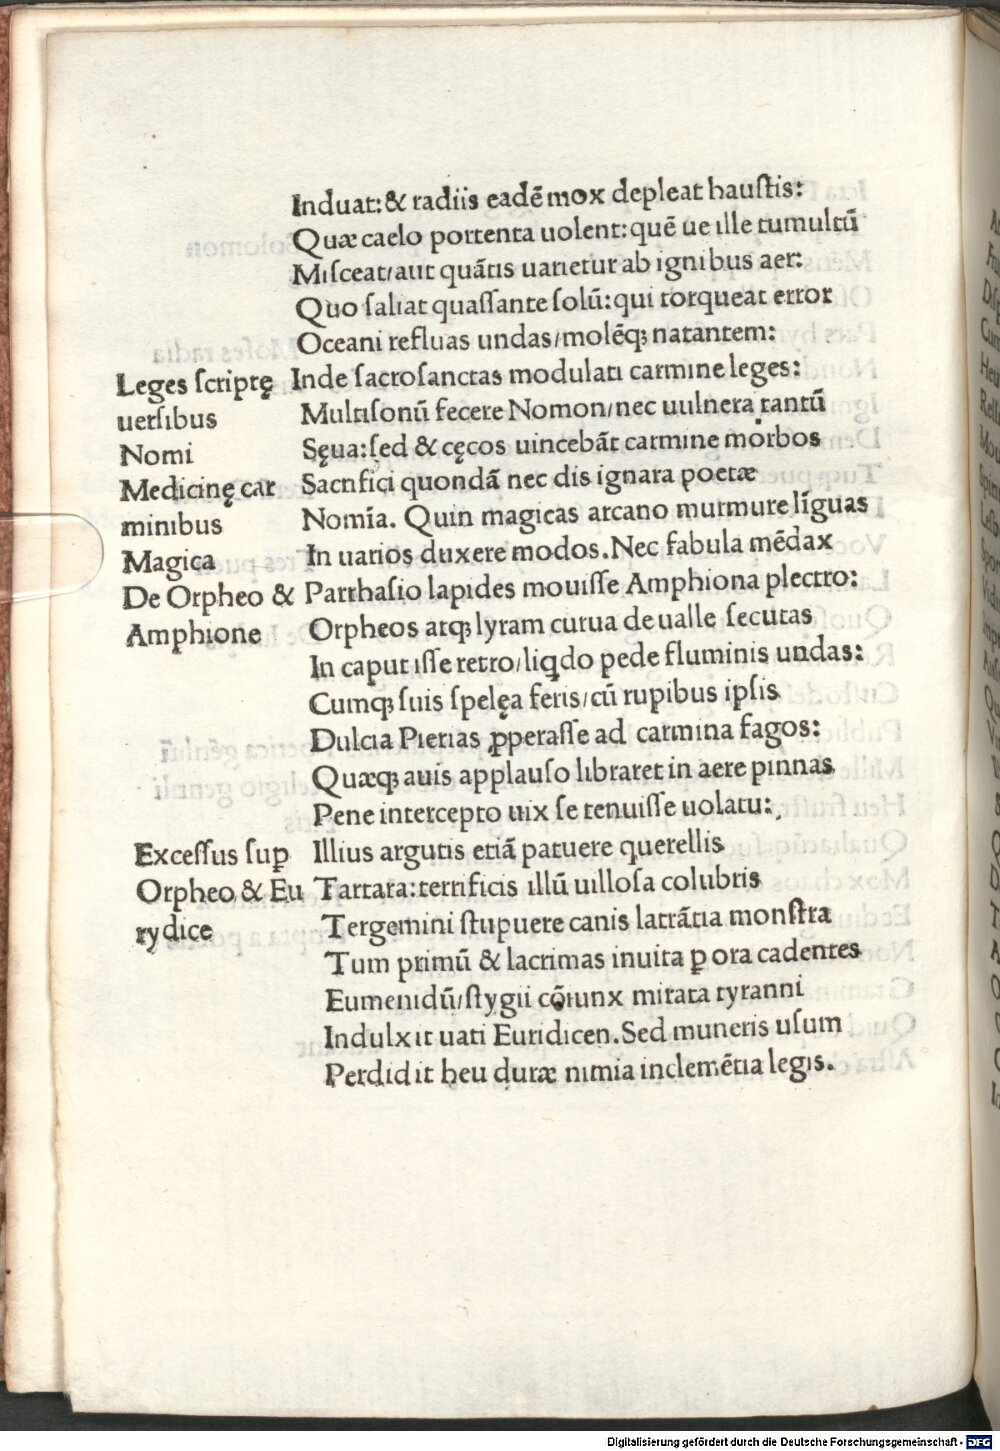 Induat: & radiis eadē mox depleat haustis:
Quæ caelo portenta uolent: quē ue ille tumultū
Misceat/aut quātis uarietur ab ignibus aer:
Quo saliat quassante solū: qui torqueat error
Oceani refluas undas/molēqꝫ natantem:
Leges scriptę
uersibus
Nomi
Medicinę car
minibus
Magica
De Orpheo &
Amphione
Inde sacrosanctas modulati carmine leges:
Multisonū fecere Nomon/nec uulnera tantū
Sęua: sed & cęcos uincebāt carmine morbos
Sacrifici quondā nec dis ignara poetæ
Nomīa. Quin magicas arcano murmure līguas
In uarios duxere modos. Nec fabula mēdax
Parrhasio lapides mouisse Amphiona plectro:
Orpheos atqꝫ lyram curua de ualle secutas
In caput isse retro/liqdo pede fluminis undas:
Cumqꝫ suis spelęa feris/cū rupibus ipsis
Dulcia Pierias ꝓperasse ad carmina fagos:
Quæqꝫ auis applauso libraret in aere pinnas
Pene intercepto uix se tenuisse uolatu:
Excessus suꝑ
Orpheo & Eu
rydice
Illius argutis etiā patuere querellis
Tartara: terrificis illū uillosa colubris
Tergemini stupuere canis latrātia monstra
Tum primū & lacrimas inuita ꝑ ora cadentes
Eumenidū/stygii cōiunx mirata tyranni
Indulxit uati Euridicen. Sed muneris usum
Perdidit heu duræ nimia inclemētia legis.
Digitalisierung gefördert durch die Deutsche Forschungsgemeinschaft - DFG